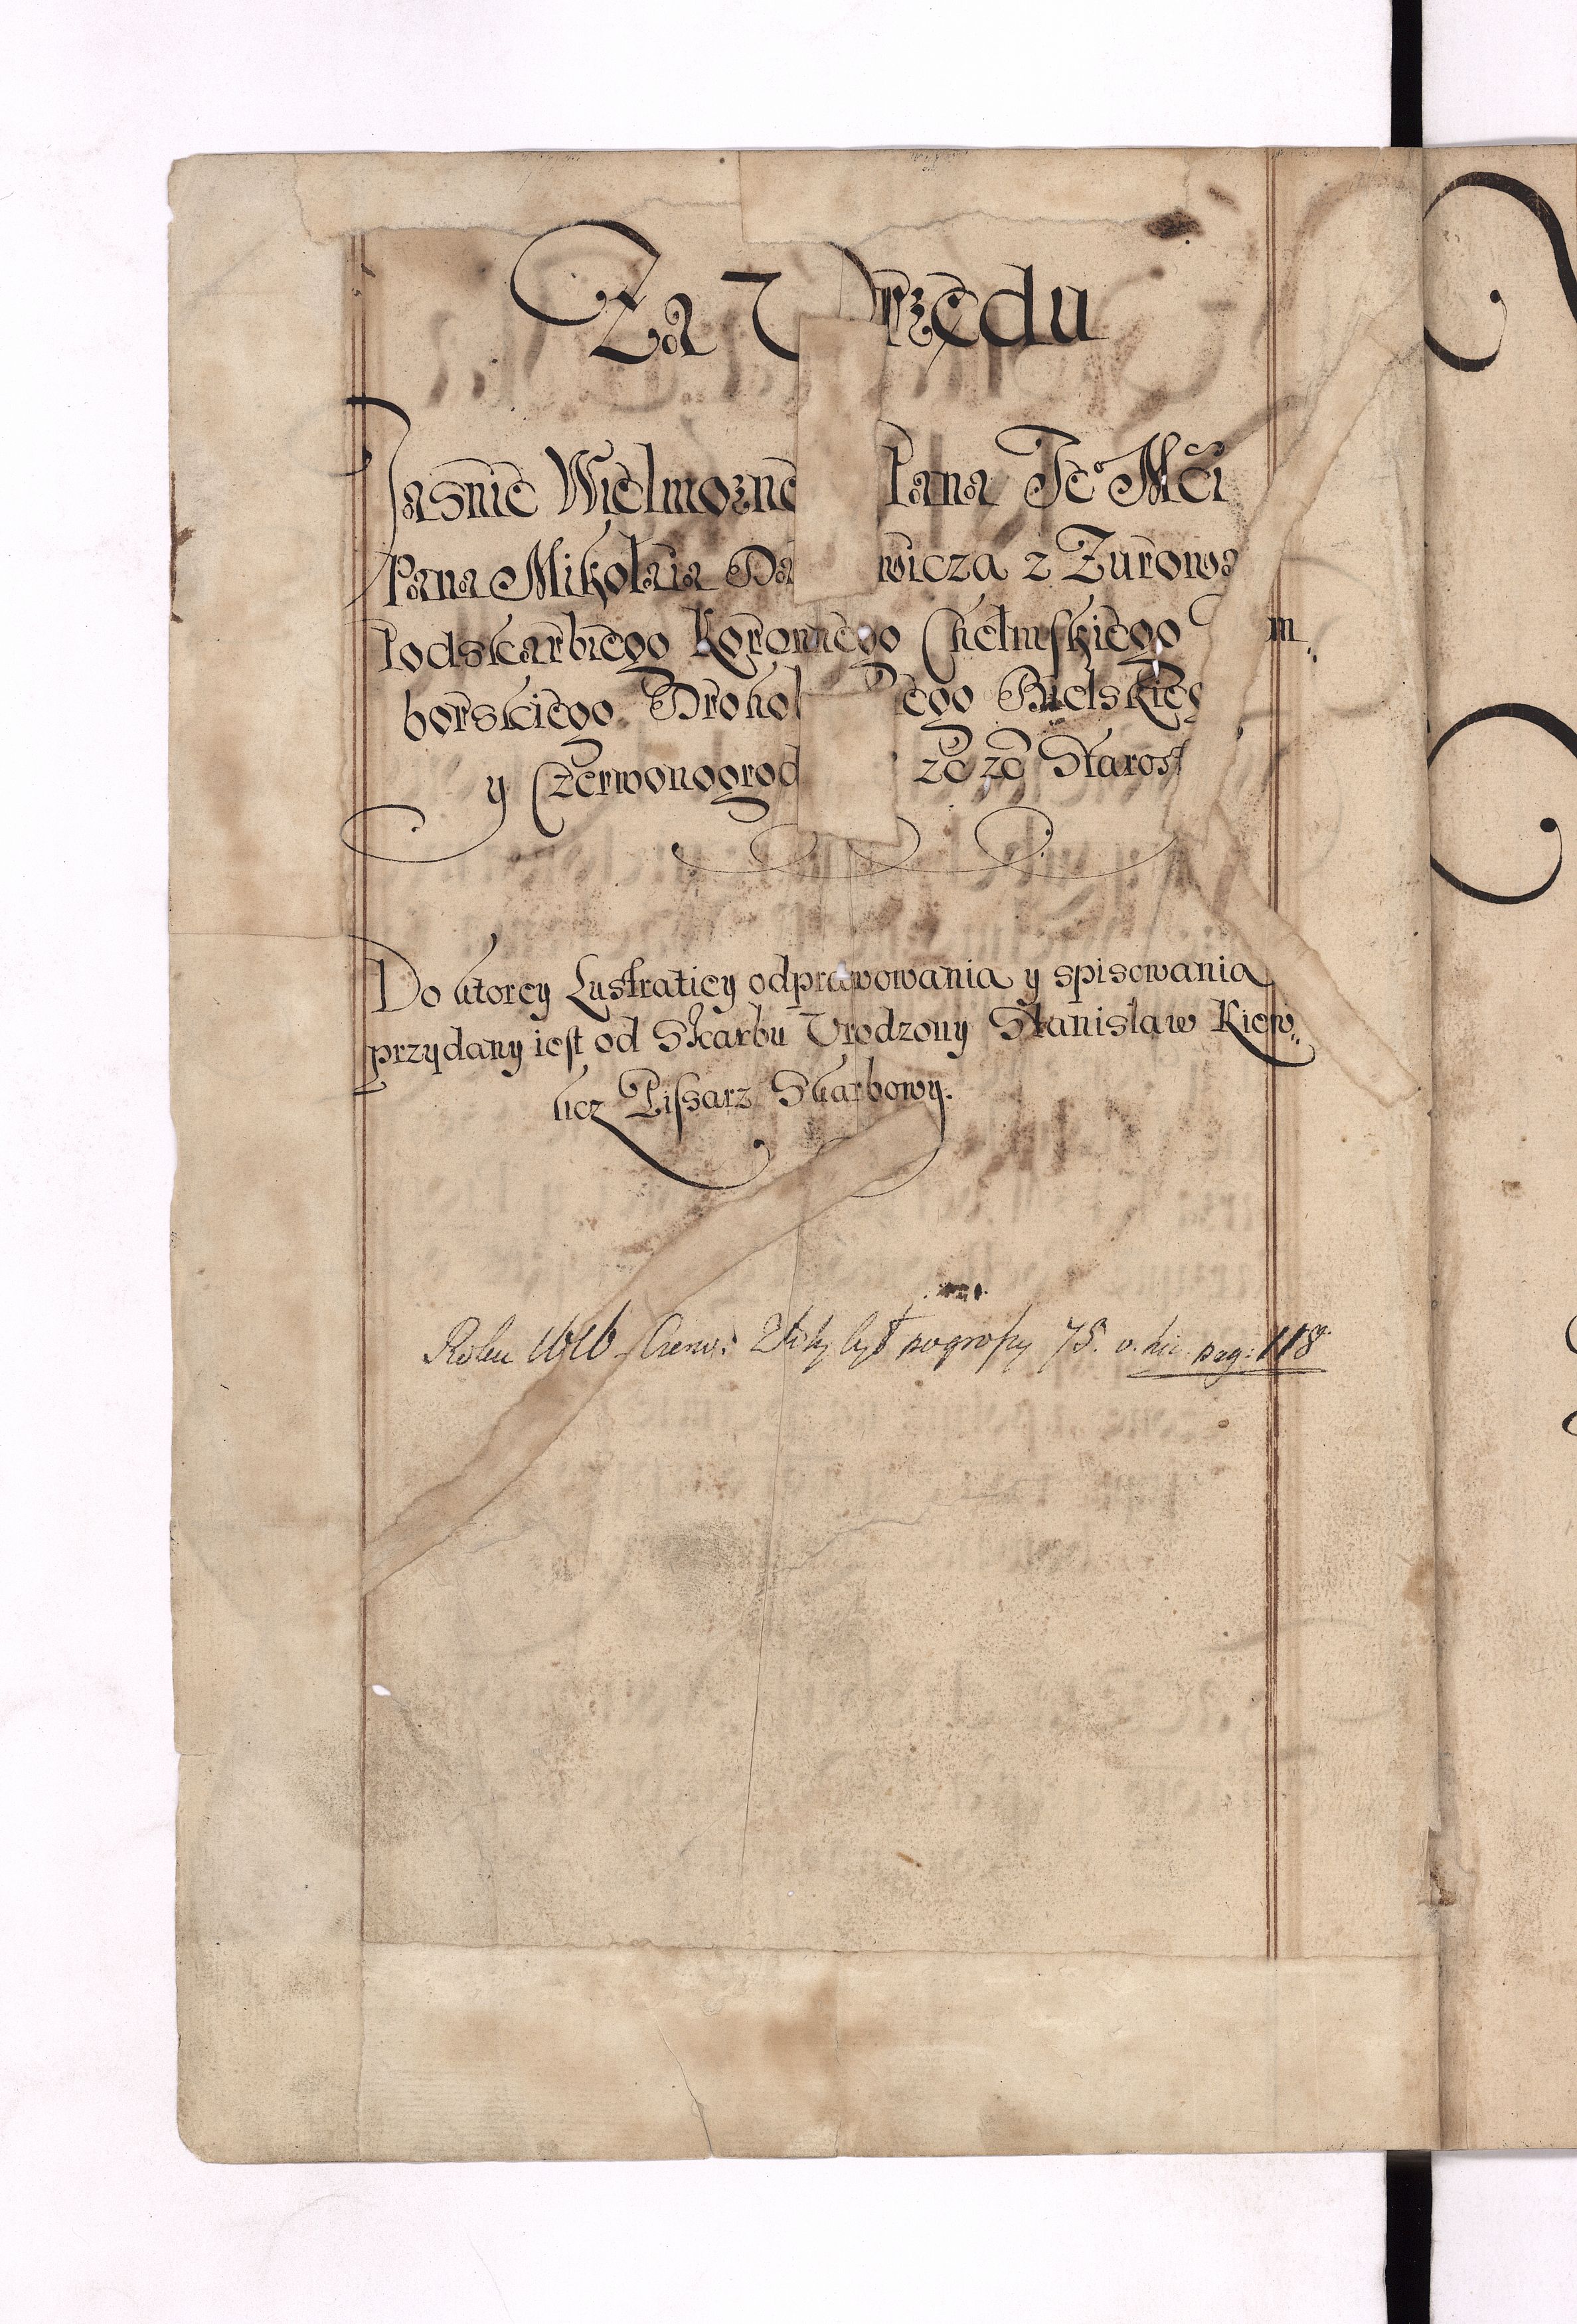 Za Vrzędu
Jasnie Wielmozne Pana Je° Mči
Pana Mikołaia Da wicza z Zurowa
Podskarbiego Koronnego Chełmskiego m
borskiego Drohob ego Bielskieg
y Czerwonogrod Starost
Do ktorey Lustratiey odprawowania y spisowania
przydany iest od Skarbu Vrodzony Stanislaw Kiew
licz Pisarz Skarbowy.
Roku 1616 Czerw: Złoty był po groszy 75. v. hic pag: 118